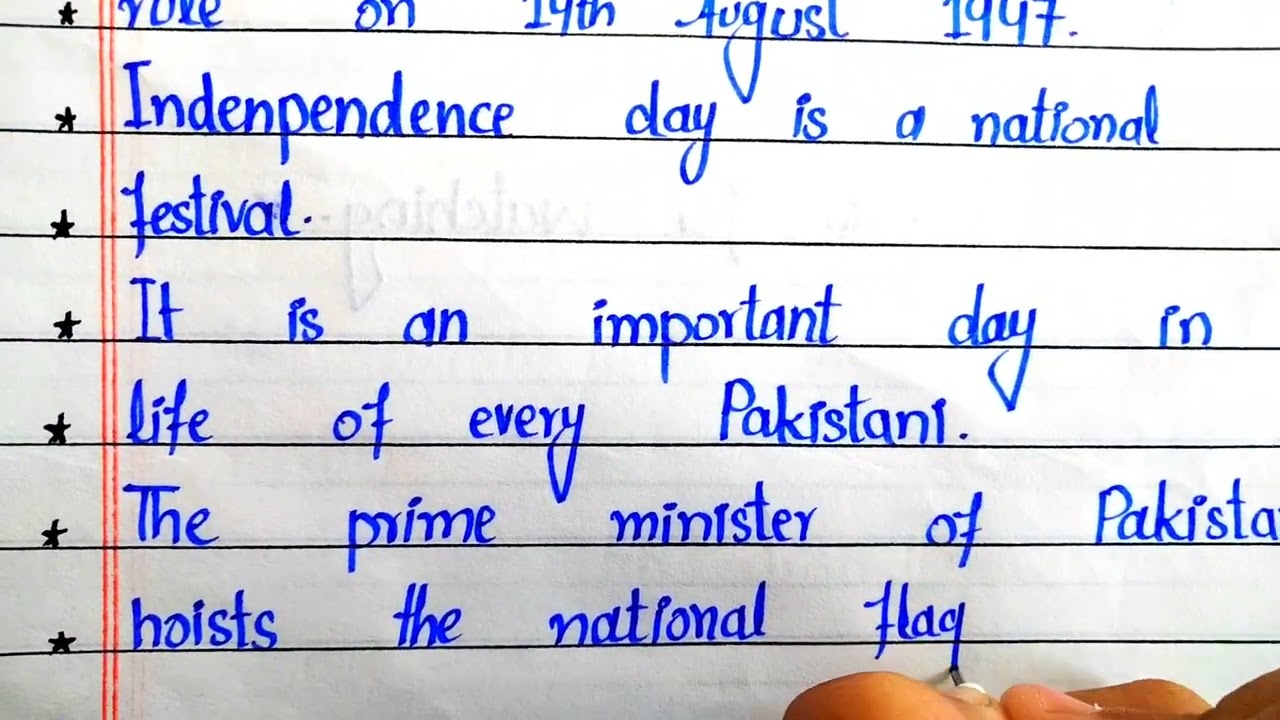 rule on 14th August 1947.
Indenpendence day is a national
festival.
It is an important day in
life of every Pakistani.
The prime minister of Pakista
hoists the national flag